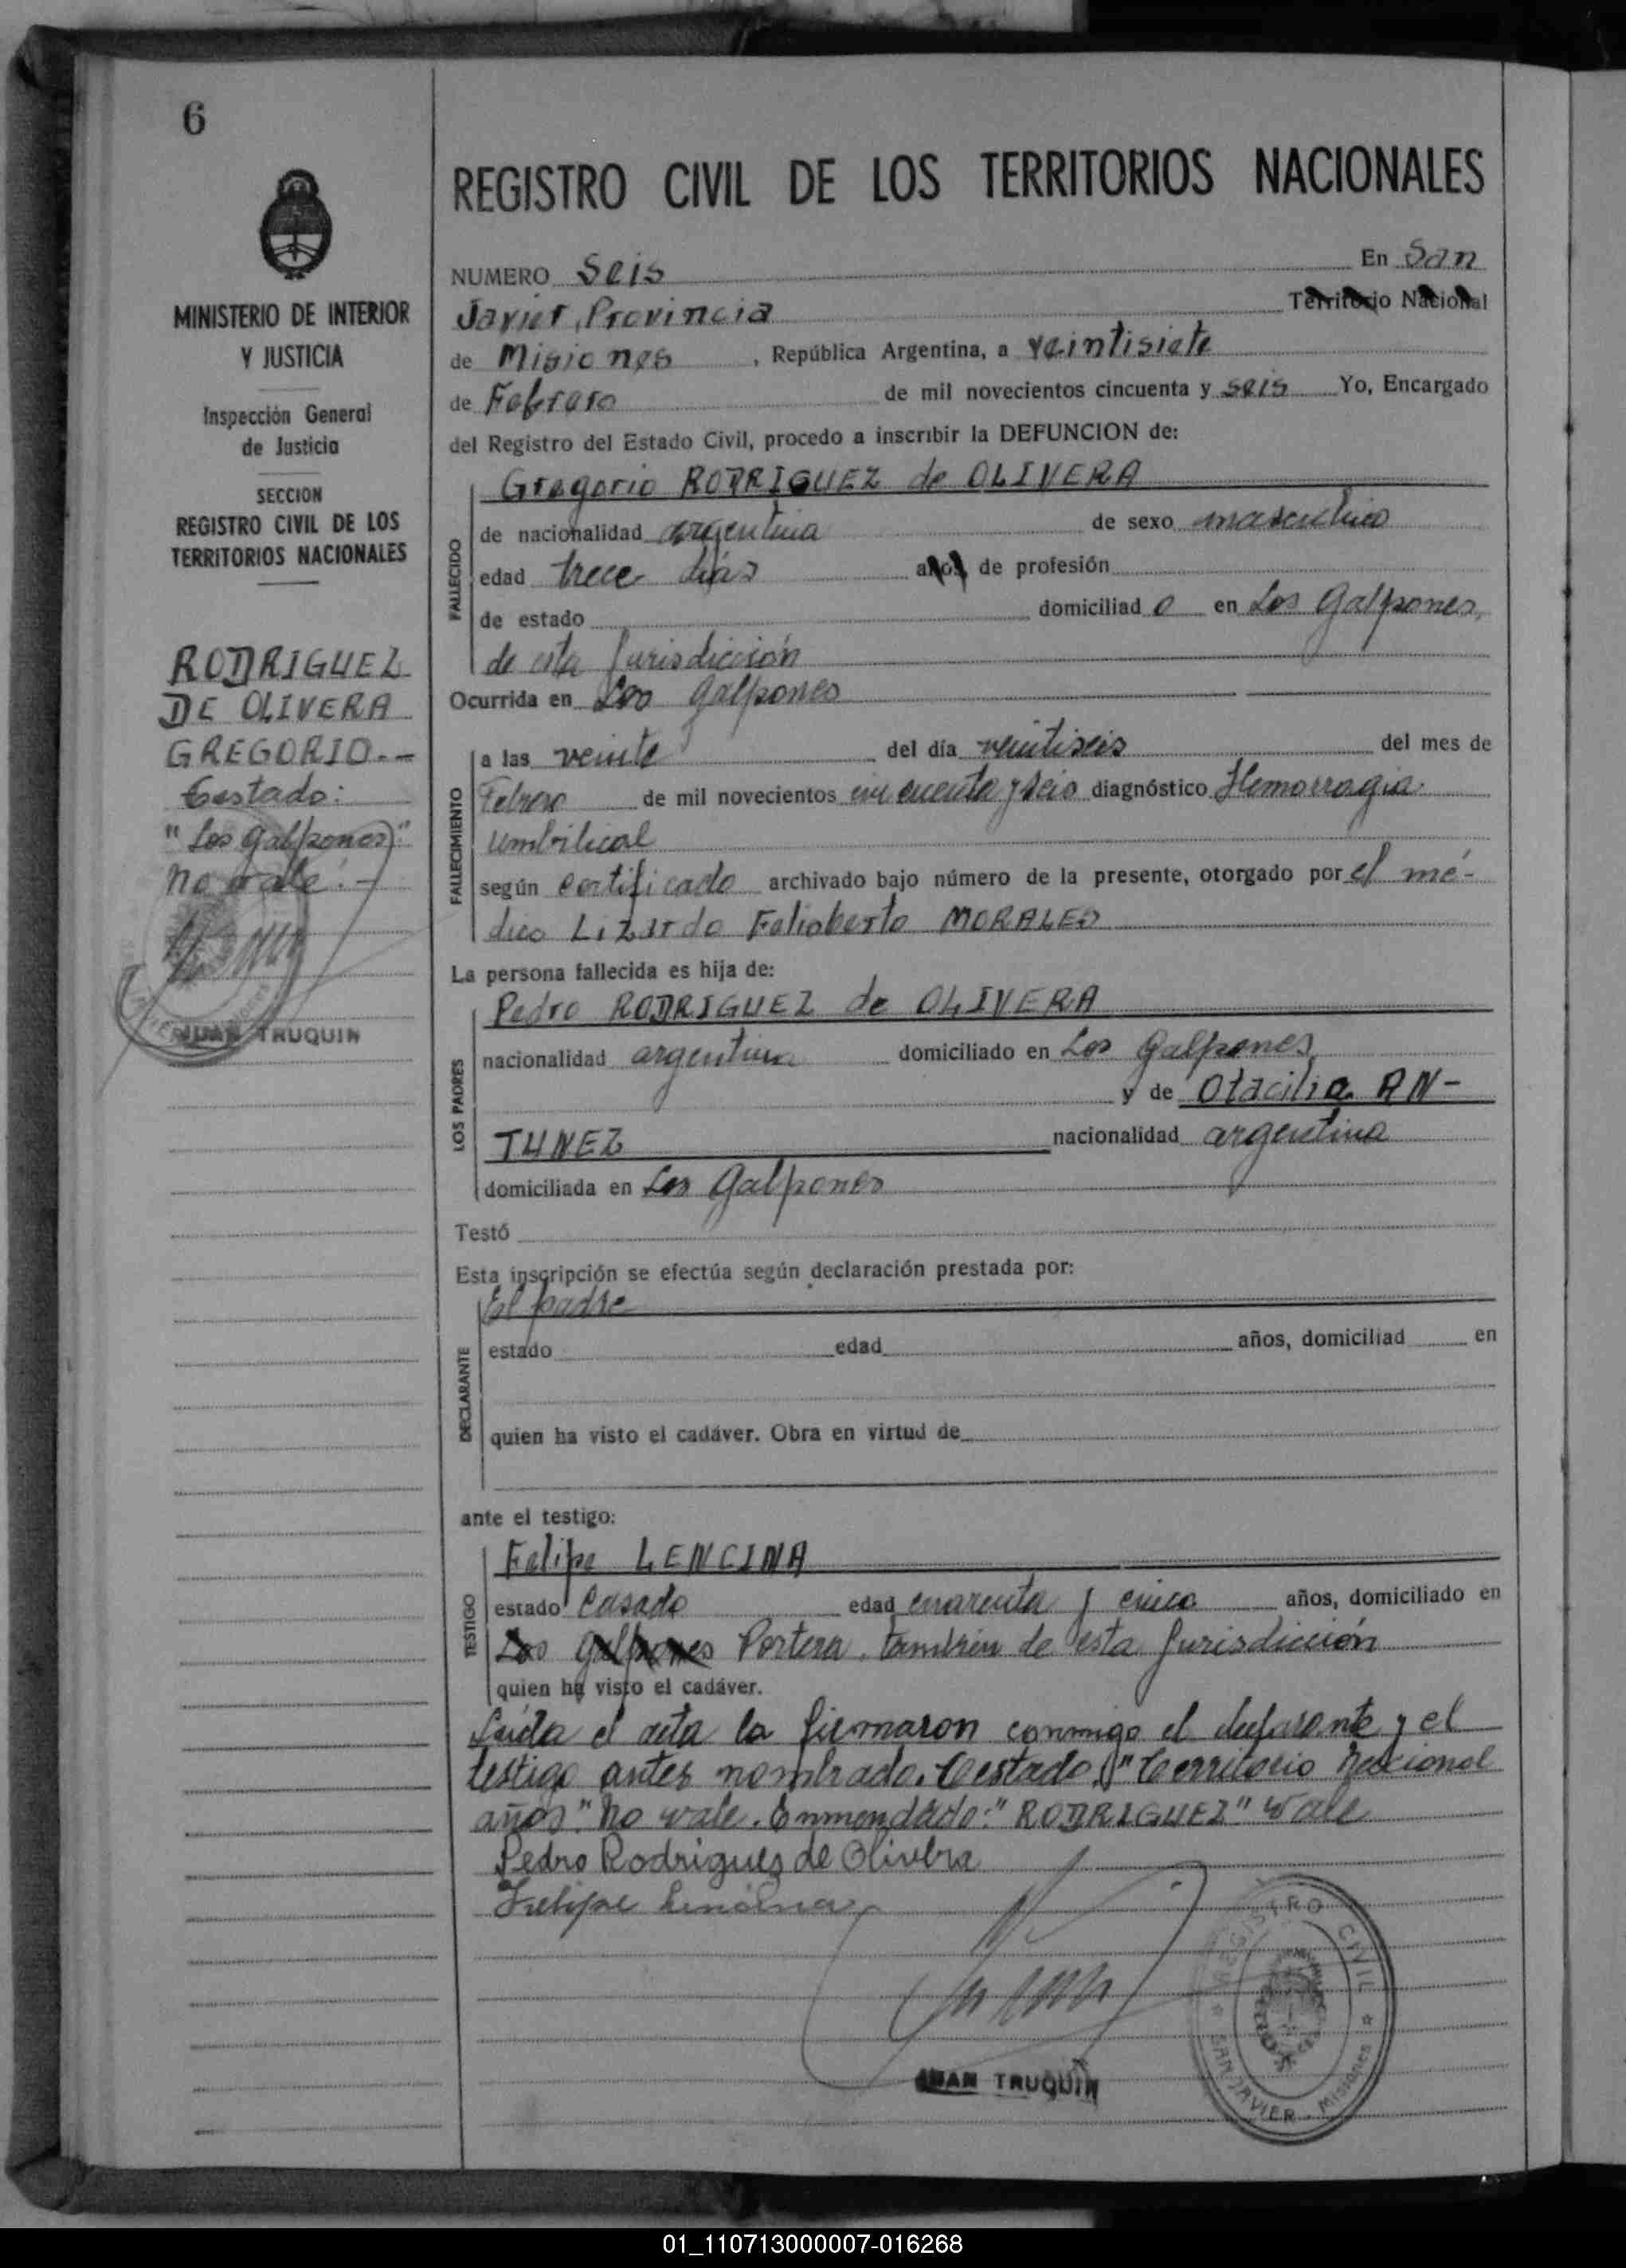 6
REGISTRO CIVIL DE LOS TERRITORIOS NACIONALES
MINISTERIO DE INTERIOR
Y JUSTICIA
Inspección General
de Justicia
SECCION
REGISTRO CIVIL DE LOS
TERRITORIOS NACIONALES
RODRIGUEZ
DE OLIVERA
GREGORIO.-
Testado:
"Los Galpones"
no vale.-
JUAN TRUQUIN
NUMERO Seis En San
Javier, Provincia Territorio Nacional
de Misiones, República Argentina, a veintisiete
de Febrero de mil novecientos cincuenta y seis Yo, Encargado
del Registro del Estado Civil, procedo a inscribir la DEFUNCION de:
Gregorio RODRIGUEZ de OLIVERA
FALLECIDO
de nacionalidad argentina de sexo masculino
edad trece días años de profesión
de estado domiciliad o en Los Galpones,
de esta Jurisdicción
Ocurrida en Los Galpones
FALLECIMIENTO
a las veinte del día veintiseis del mes de
Febrero de mil novecientos cincuenta y seis diagnóstico Hemorragia
umbilical
según certificado archivado bajo número de la presente, otorgado por el mé-
dico Lizardo Felisberto MORALES
La persona fallecida es hija de:
LOS PADRES
Pedro RODRIGUEZ de OLIVERA
nacionalidad argentina domiciliado en Los Galpones,
y de Otacilia AN-
TUNEZ nacionalidad argentina
domiciliada en Los Galpones
Testó
Esta inscripción se efectúa según declaración prestada por:
DECLARANTE
El padre
estado edad años, domiciliad en
quien ha visto el cadáver. Obra en virtud de
ante el testigo:
TESTIGO
Felipe LENCINA
estado casado edad cuarenta y cinco años, domiciliado en
Los Galpones Portera, también de esta Jurisdicción
quien ha visto el cadáver.
Leída el acta la firmaron conmigo el declarante y el
testigo antes nombrado. Testado: "Territorio Nacional
años" no vale. Enmendado: "RODRIGUEZ" vale
Pedro Rodrigues de Olivera
Felipe Lencina
JUAN TRUQUIN
REGISTRO CIVIL
SAN JAVIER - Misiones
01_110713000007-016268